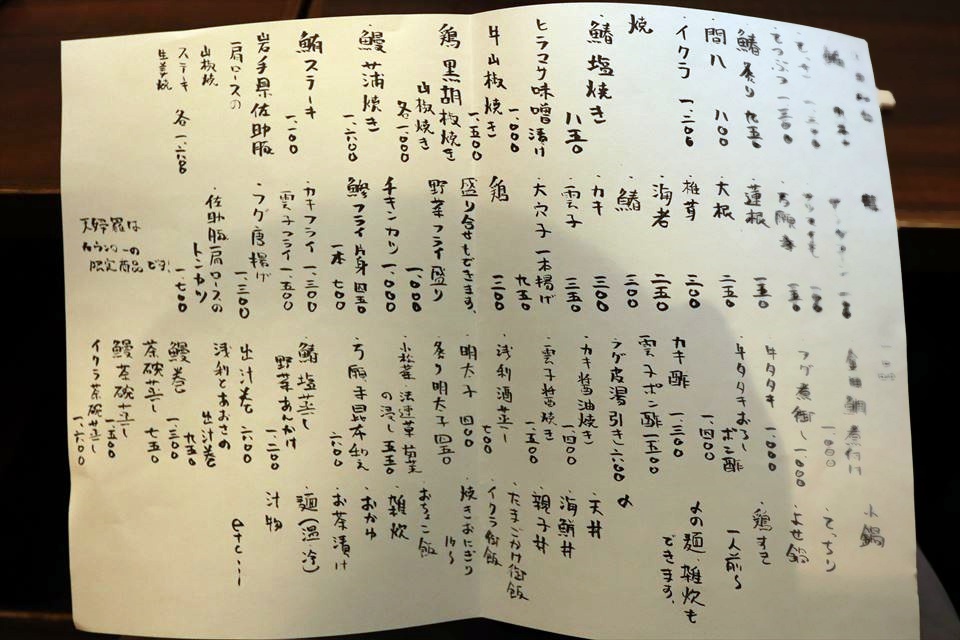 てつぶつ 一.三〇〇
・鰆炙り 九五〇
・間八 八〇〇
・イクラ 一.二〇〇
焼
・鰆塩焼き 八五〇
ヒラマサ味噌漬け 一.〇〇〇
・牛山椒焼き 一.五〇〇
・鶏黒胡椒焼き
山椒焼き 各一.〇〇〇
・鰻蒲焼き 一.六〇〇
・鮪ステーキ 一.一〇〇
岩手県佐助豚
・肩ロースの
山椒焼
ステーキ 各一.六〇〇
生姜焼
・万願寺 一五〇
・蓮根 一五〇
・大根 二五〇
・椎茸 二〇〇
・海老 二五〇
・鰆 三〇〇
・カキ 三〇〇
・雲子 三五〇
・大穴子一本揚げ 九五〇
・鶏 三〇〇
盛り合せもできます。
野菜フライ盛り 一.〇〇〇
・チキンカツ 一.〇〇〇
・鰺フライ片身 四五〇
一本 七〇〇
・カキフライ 一.三〇〇
雲子フライ 一.五〇〇
・フグ唐揚げ 一.三〇〇
・佐助豚肩ロースの
トンカツ 一.七〇〇
天婦羅は
カウンターの
限定商品です!
金目鯛煮付け
・フグ煮卸し 一.〇〇〇
・牛タタキ 一.〇〇〇
・牛タタキおろし
ポン酢 一.四〇〇
カキ酢 一.三〇〇
雲子ポン酢 一.五〇〇
・フグ皮湯引き 六〇〇
・カキ醤油焼き 一.四〇〇
・雲子醤焼き 一.五〇〇
・浅利酒蒸し 七〇〇
・明太子 四〇〇
炙り明太子 四五〇
・小松菜・法連草・菊菜
の浸し 五五〇
・万願寺昆布和え 六〇〇
・鰆塩蒸し
野菜あんかけ 一.二〇〇
・出汁巻 六〇〇
浅利とあおさの
出汁巻 九五〇
鰻巻 一.三〇〇
茶碗蒸し 七五〇
鰻茶碗蒸し 一.五〇〇
イクラ茶碗蒸し 一.六〇〇
小鍋
・てっちり
・よせ鍋
・鶏すき
一人前〜
〆の麺、雑炊も
できます。
〆
・天丼
・海鮮丼
・親子丼
・たまごかけ御飯
・イクラ御飯
・焼きおにぎり
・おちょこ飯
・雑炊
・おかゆ
・お茶漬け
・麺(温冷)
・汁物
etc...